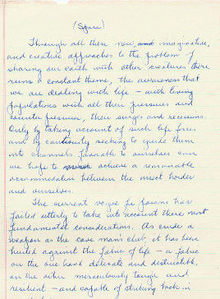 (Space)
Through all these new, imaginative,
and creative approaches to the problem of
sharing our earth with other creatures there
runs a constant theme, the awareness that
we are dealing with life - with living
populations with all their pressures and
counter pressures, their surges and recessions.
Only by taking account of such life forces
and by cautiously seeking to guide them
into channels favorable to ourselves can
we hope to achieve a reasonable
accommodation between the insect hordes
and ourselves.
The current vogue for poisons has
failed utterly to take into account these most
fundamental considerations. As crude a
weapon as the cave man's club, it has been
hurled against the fabric of life - a fabric
on the one hand delicate and destructible,
on the other miraculously tough and
resilient - and capable of striking back in